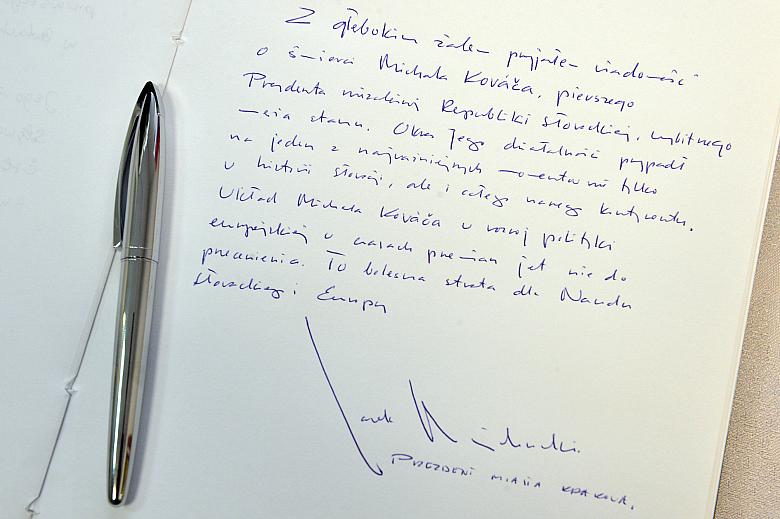 Z głębokim żalem przyjąłem wiadomość
o śmierci Michala Kováča, pierwszego
Prezydenta niezależnej Republiki Słowackiej, wybitnego
męża stanu. Okres Jego działalności przypadł
na jeden z najważniejszych momentów nie tylko
w historii Słowacji, ale i całego naszego kontynentu.
Wkład Michala Kováča w rozwój polityki
europejskiej w czasach przemian jest nie do
przecenienia. To bolesna strata dla Narodu
Słowackiego i Europy
Jacek Majchrowski
PREZYDENT MIASTA KRAKOWA.